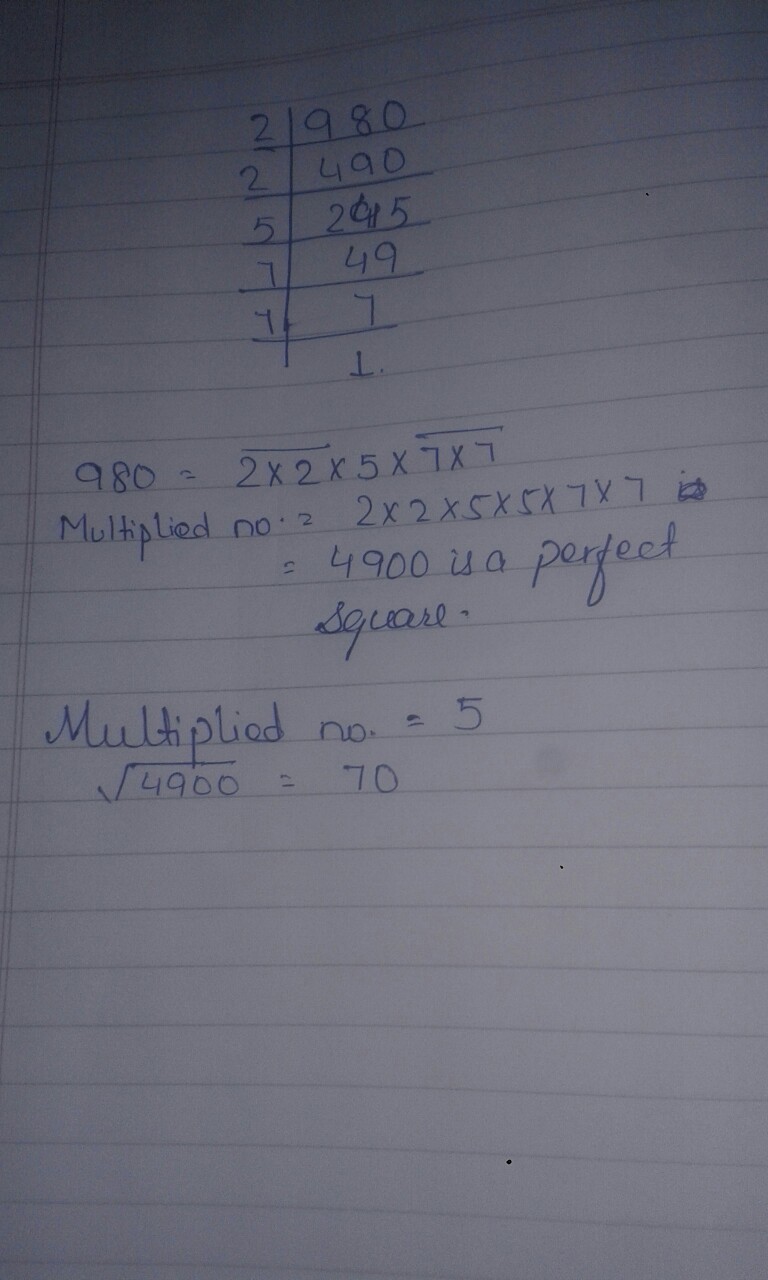 2 | 980
2 | 490
5 | 245
7 | 49
7 | 7
1.
980 = 2 x 2 x 5 x 7 x 7
Multiplied no. = 2 x 2 x 5 x 5 x 7 x 7
= 4900 is a perfect
square.
Multiplied no. = 5
√4900 = 70